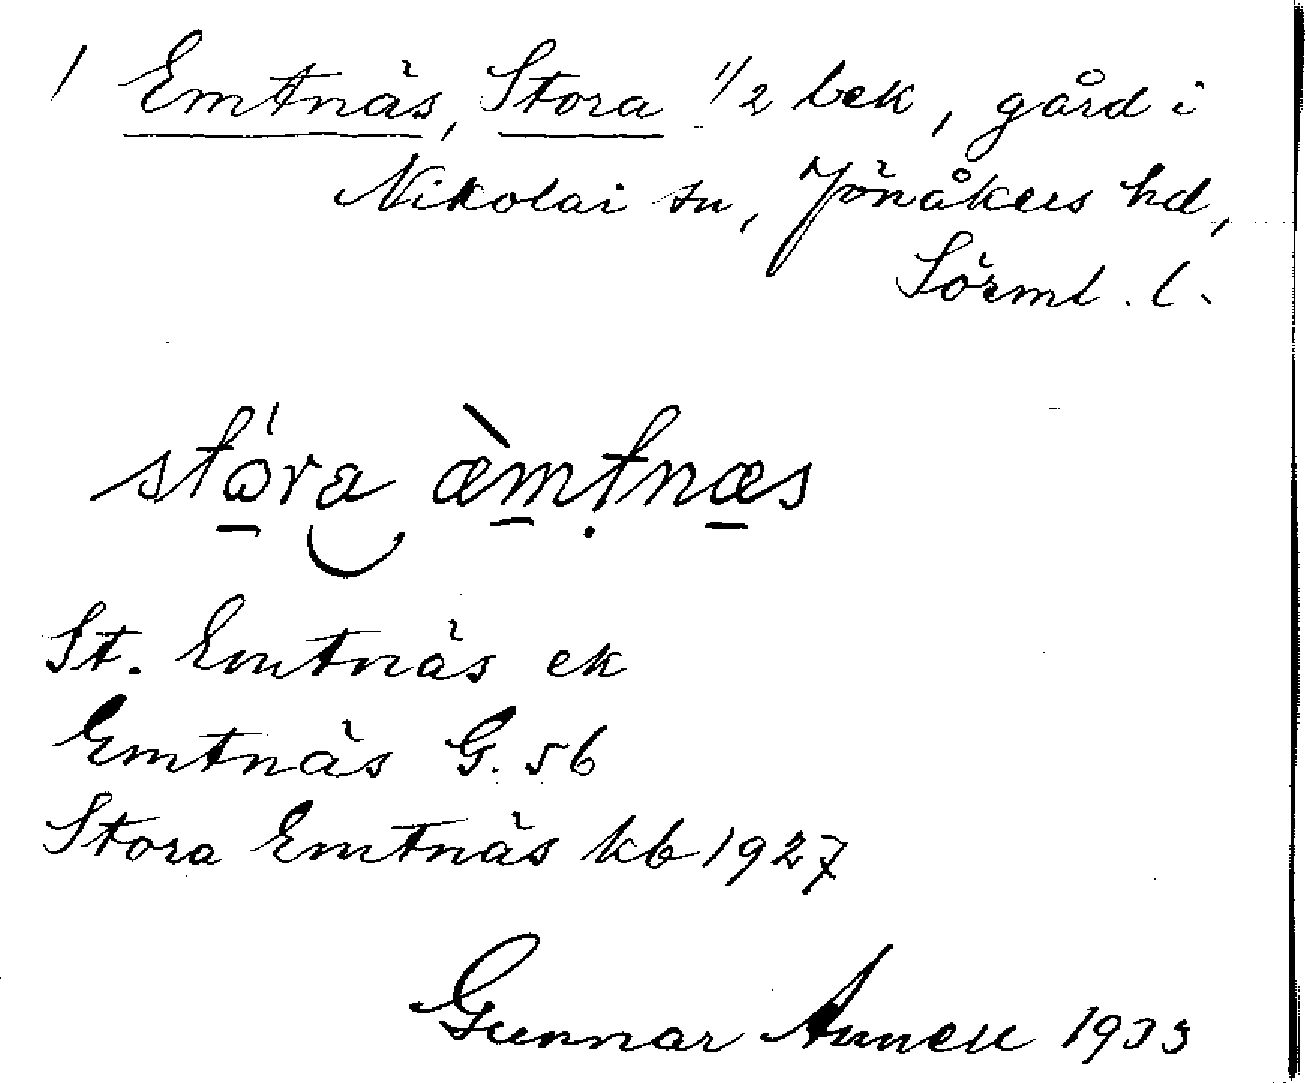 1 Emtnäs, Stora 1/2 bek, gård i
Nikolai sn, Jönåkers hd,
Sörml. l.
stώ̱ra æ̀m̱ṭnæ̱s
St. Emtnäs ek
Emtnäs G. 56
Stora Emtnäs kb 1927
Gunnar Annell 1933